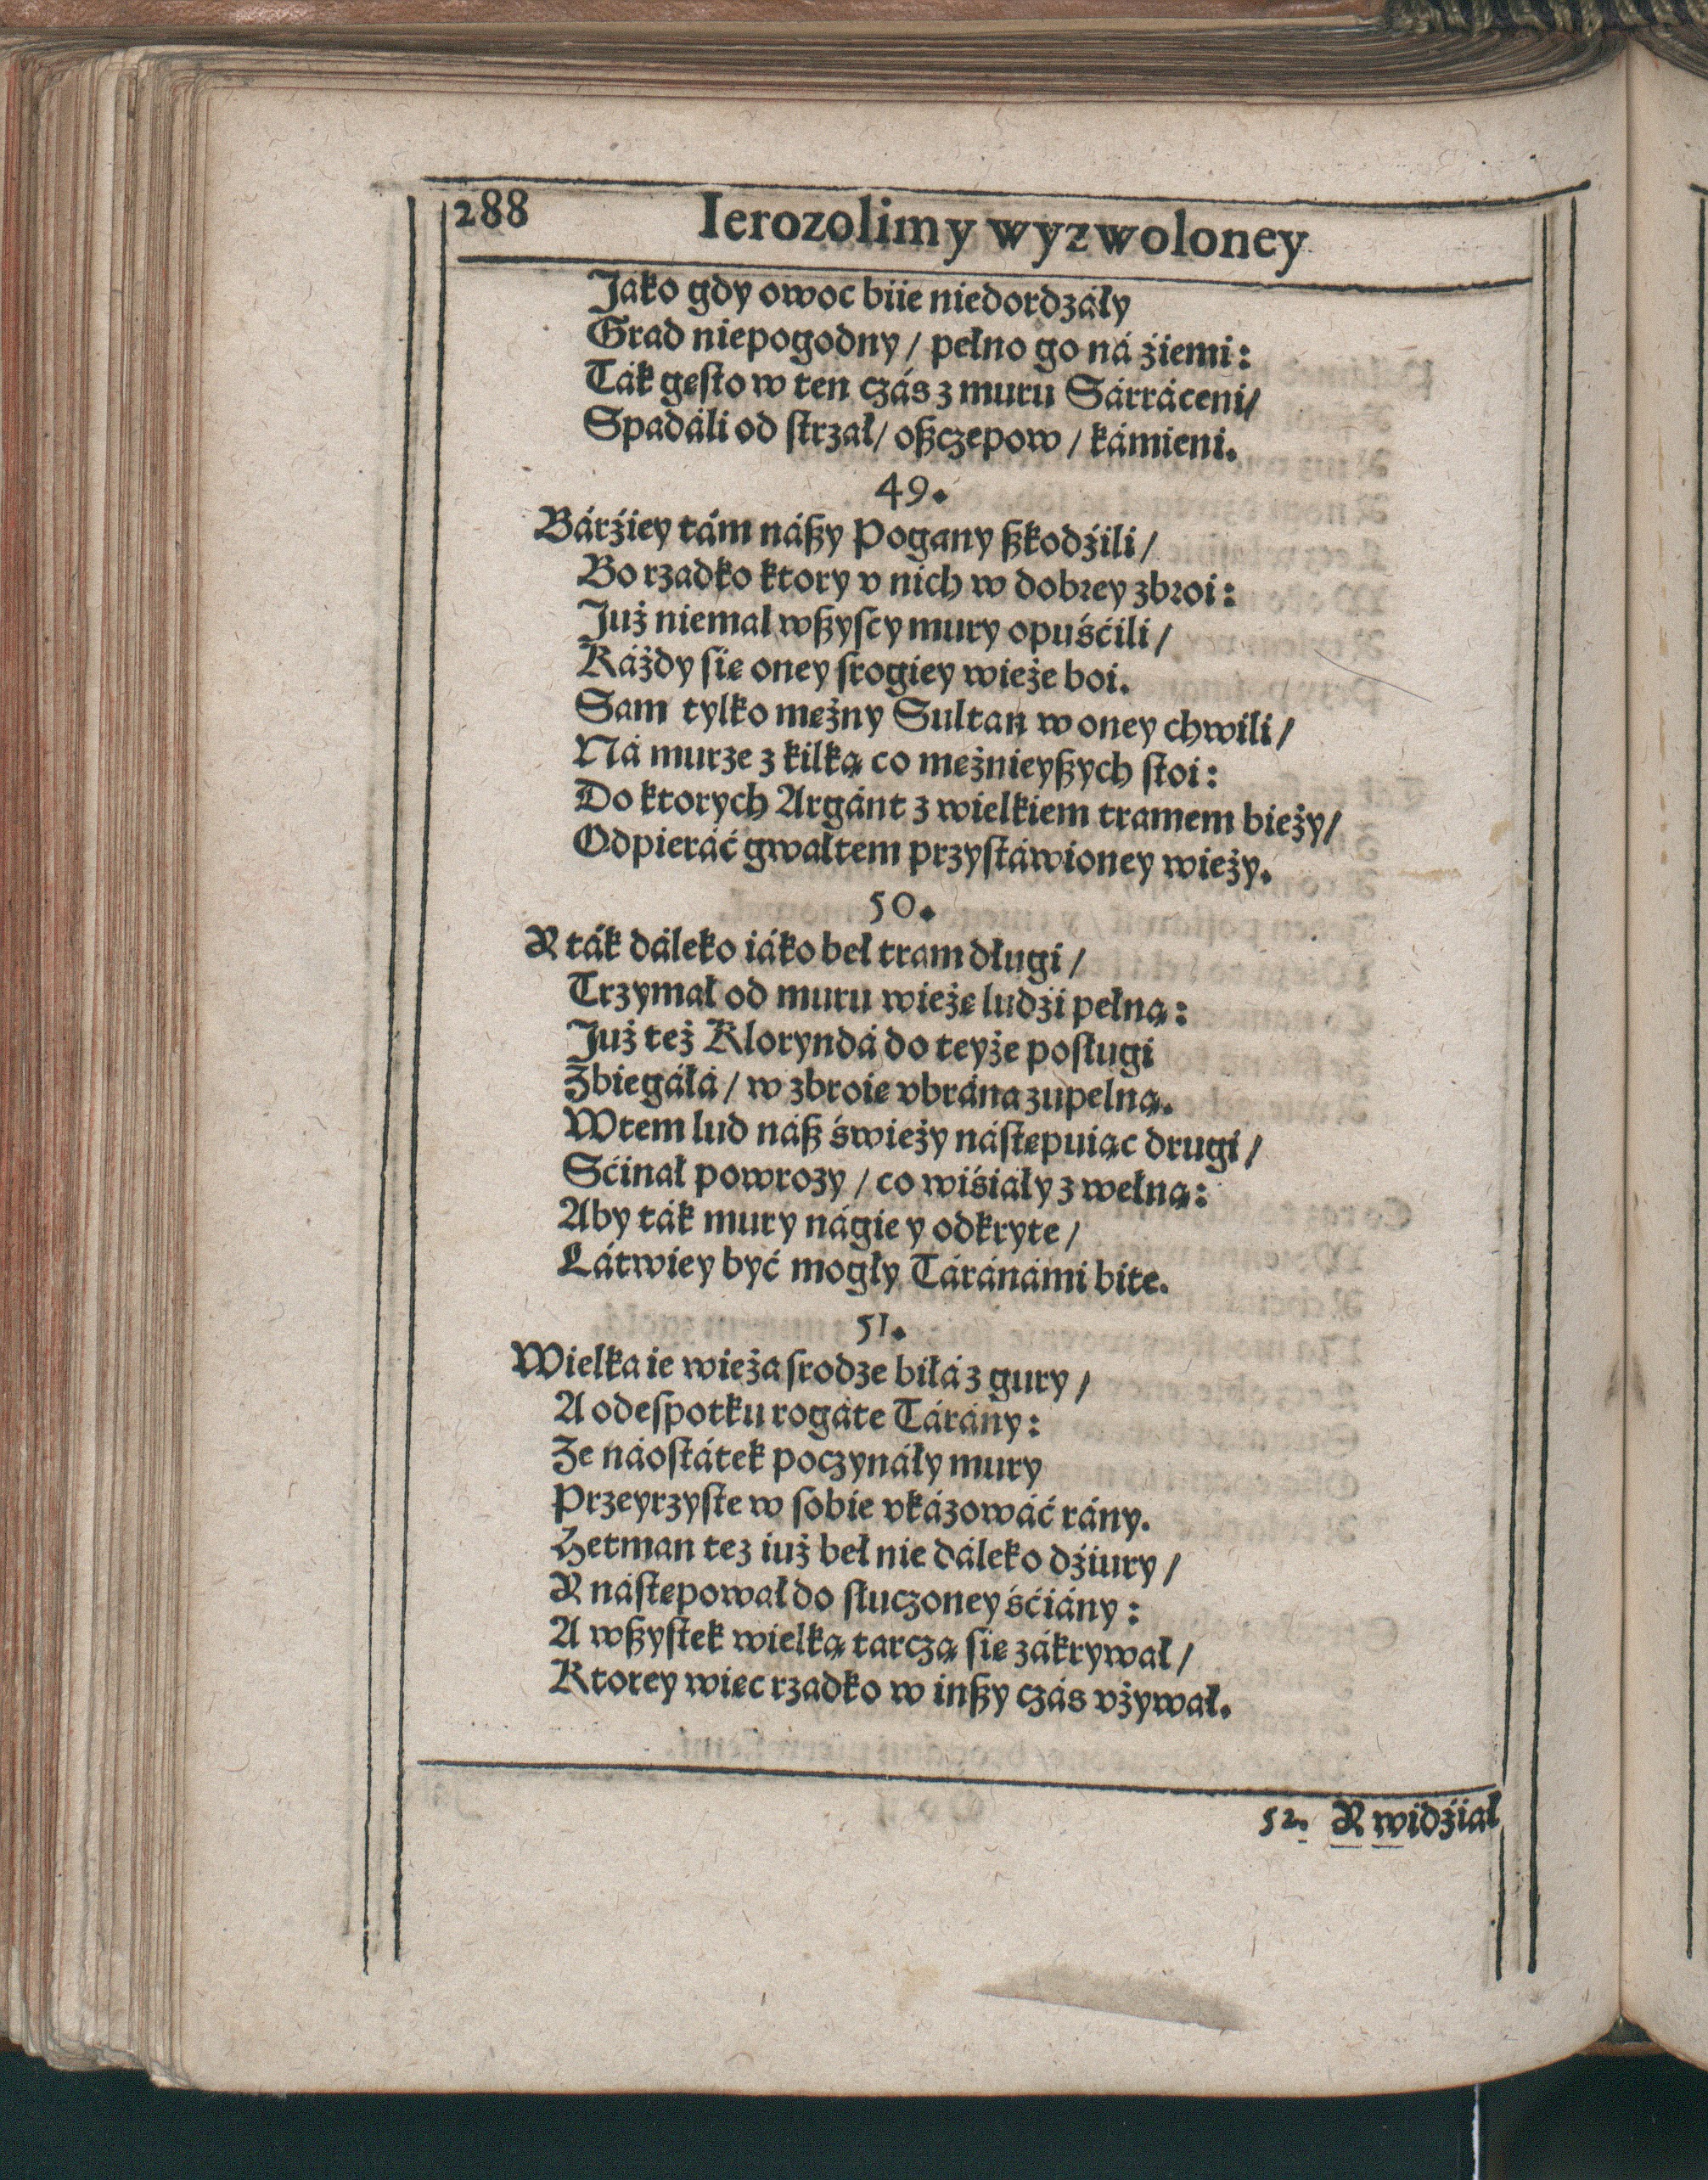 288 Ierozolimy wyzwoloney
Jáko gdy owoc biie niedordzáły
Grad niepogodny / pełno go ná źiemi:
Ták gęsto w ten czás z muru Sárráceni/
Spadáli od strzał/ oßczepow / kámieni.
49.
Bárźiey tám náßy Pogany ßkodźili /
Bo rzadko ktory v nich w dobrey zbroi:
Już niemal wßyscy mury opuśćili /
Káżdy się oney srogiey wieże boi.
Sam tylko mężny Sultan w oney chwili /
Ná murze z kilką co mężnieyßych stoi:
Do ktorych Argánt z wielkiem tramem bieży/
Odpieráć gwałtem przystáwioney wieży.
50.
Y ták dáleko iáko beł tram długi /
Trzymał od muru wieżę ludźi pełną:
Już też Kloryndá do teyże posługi
Zbiegáłá / w zbroię vbrána zupelną.
Wtem lud náß świeży nástępuiąc drugi /
Sćinał powrozy / co wiśiáły z wełną:
Aby ták mury nágie y odkryte /
Látwiey być mogły Táránámi bite.
51.
Wielka ie wieża srodze biłá z gury /
A odespotku rogáte Tárány:
Ze náostátek poczynáły mury
Przeyrzyste w sobie vkázowáć rány.
Hetman tez iuż beł nie dáleko dźiury /
Y nástępował do stłuczoney śćiány:
A wßystek wielką tarczą się zákrywał /
Ktorey więc rzadko w inßy czás vżywał.
52. Y widźiał